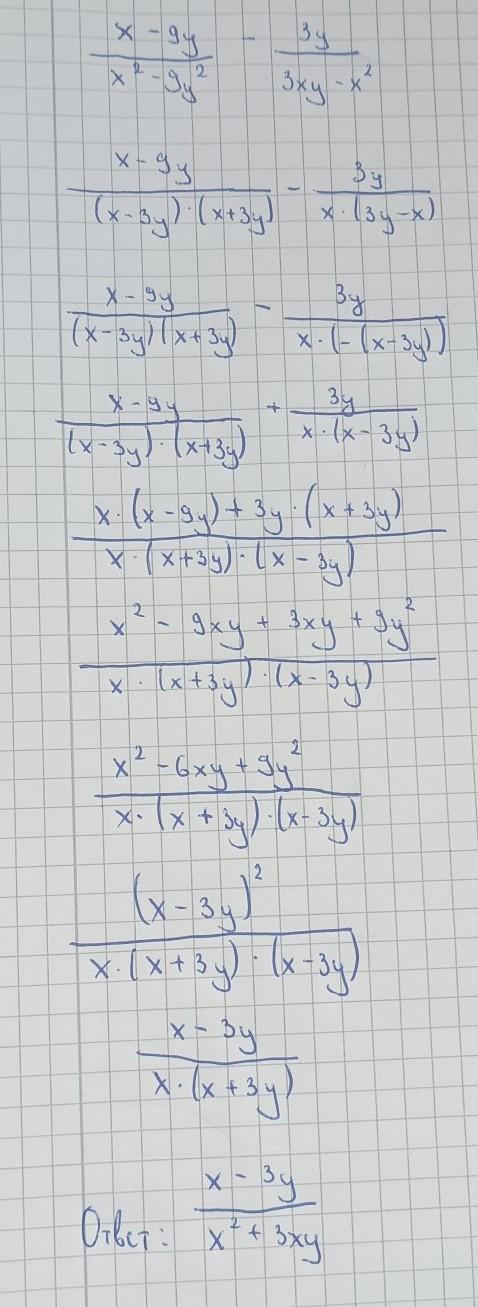 (x - 9y)/(x² - 9y²) - 3y/(3xy - x²)
(x - 9y)/((x - 3y) · (x + 3y)) - 3y/(x · (3y - x))
(x - 9y)/((x - 3y)(x + 3y)) - 3y/(x · (-(x - 3y)))
(x - 9y)/((x - 3y) · (x + 3y)) + 3y/(x · (x - 3y))
(x · (x - 9y) + 3y · (x + 3y))/(x · (x + 3y) · (x - 3y))
(x² - 9xy + 3xy + 9y²)/(x · (x + 3y) · (x - 3y))
(x² - 6xy + 9y²)/(x · (x + 3y) · (x - 3y))
(x - 3y)²/(x · (x + 3y) · (x - 3y))
(x - 3y)/(x · (x + 3y))
Ответ: (x - 3y)/(x² + 3xy)